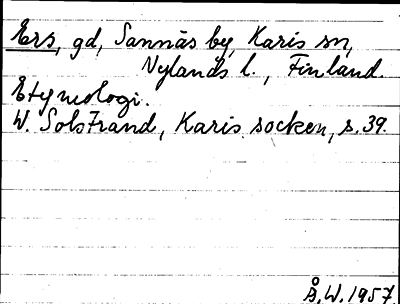 Ers, gd, Sannäs by, Karis sn,
Nylands l., Finland.
Etymologi.
W. Solstrand, Karis socken, s. 39.
Å. W. 1957.